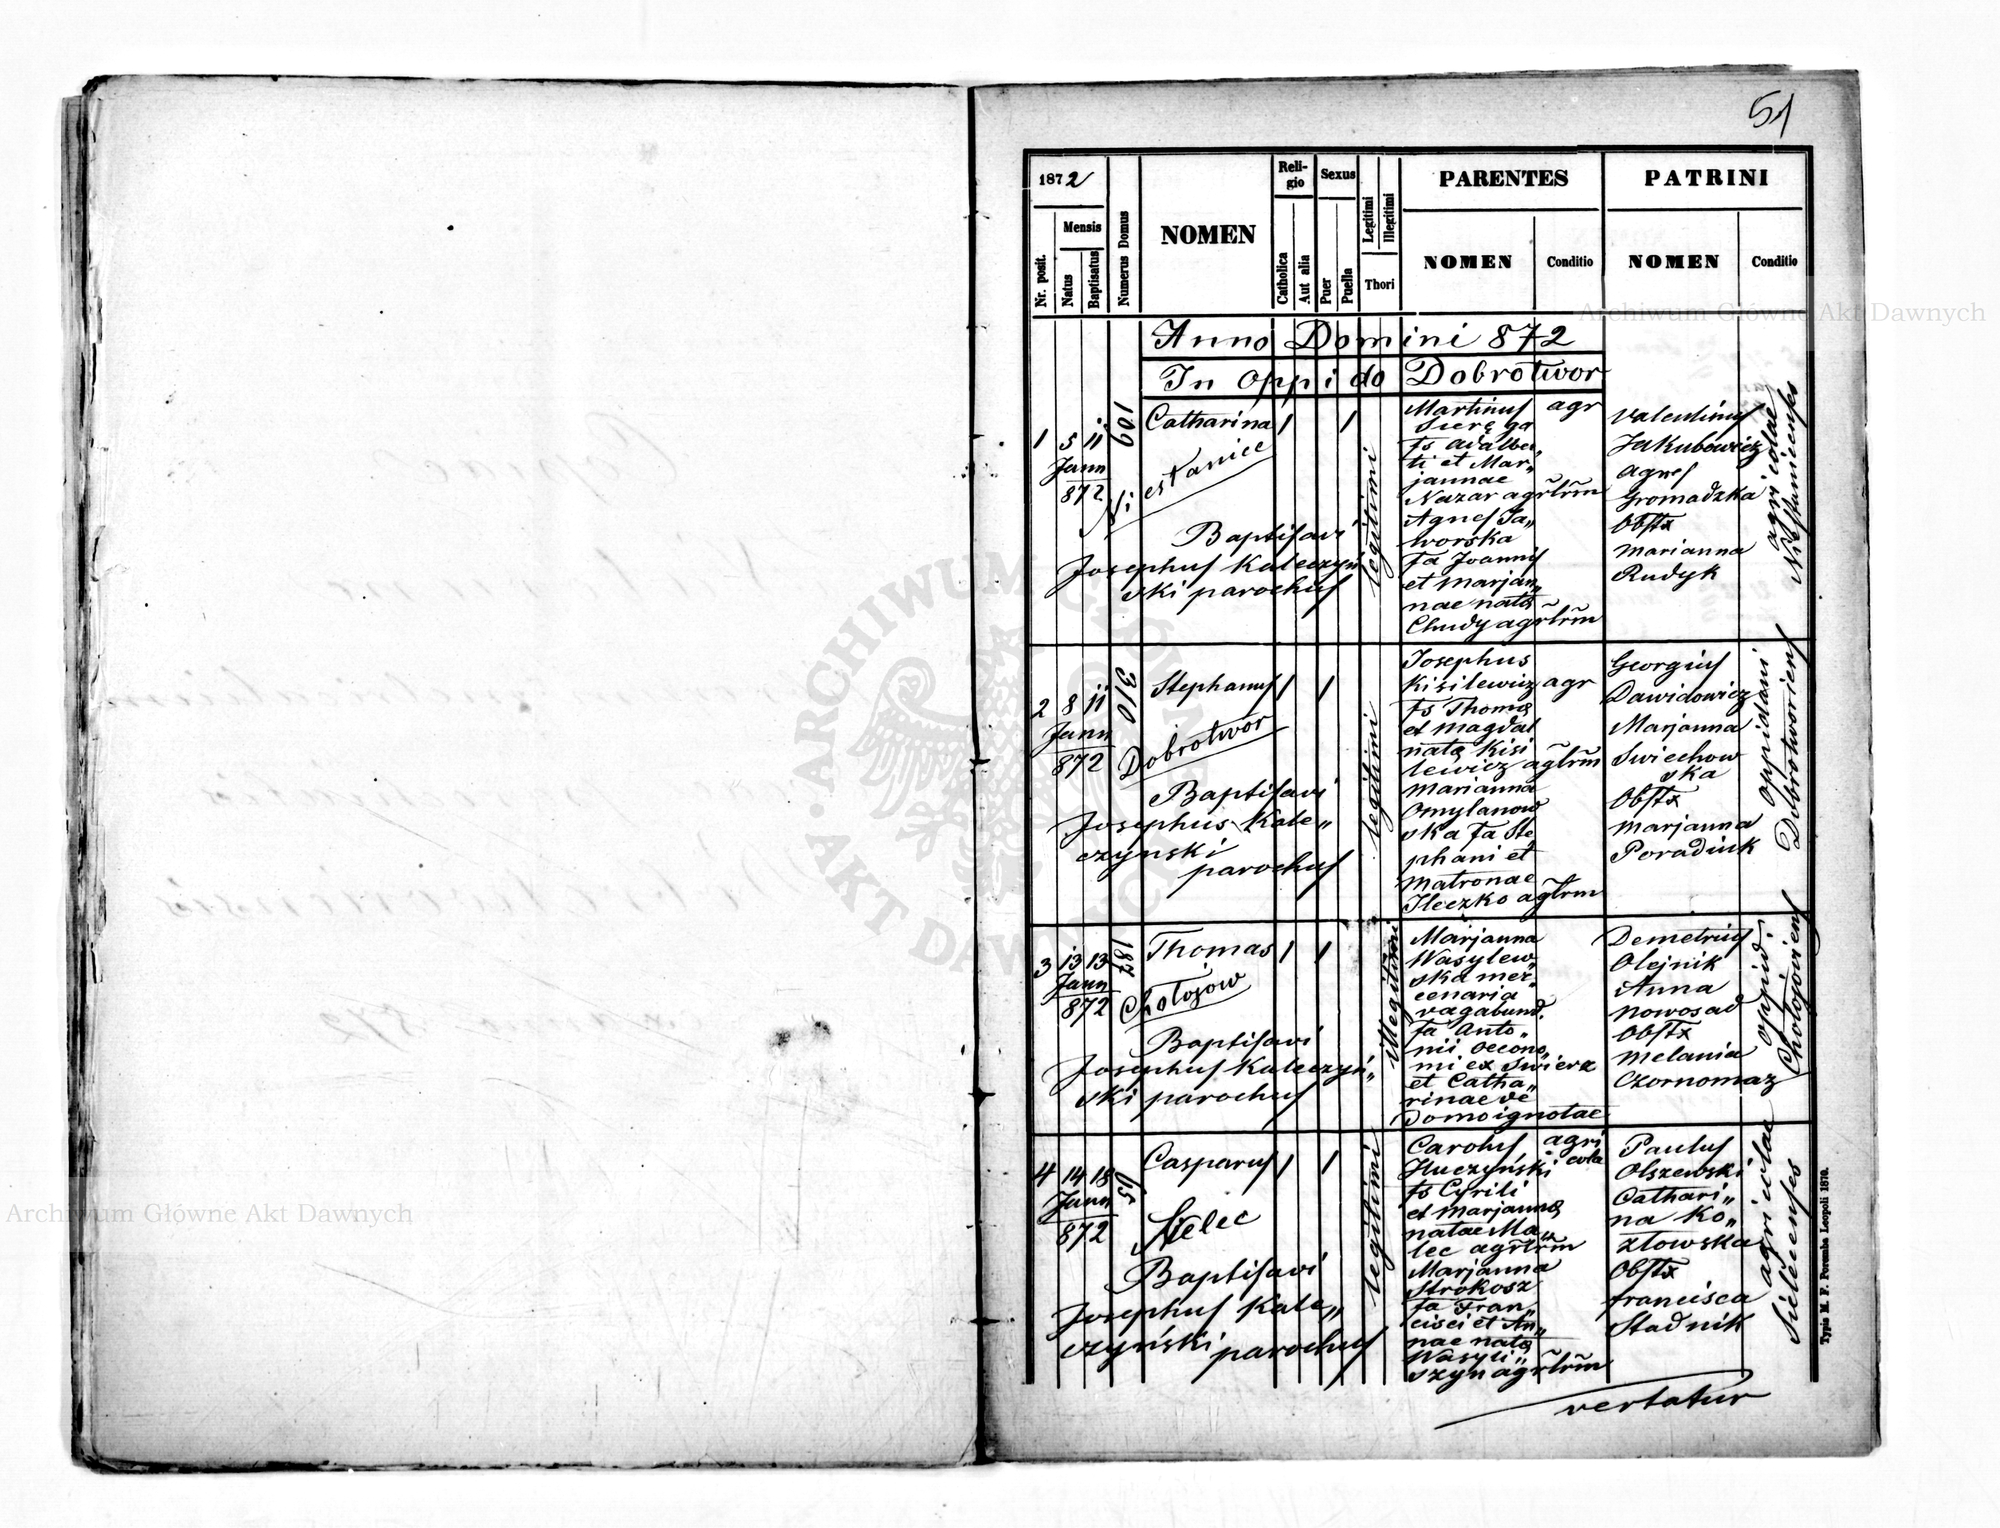 51
1872
Nr. posit.
Mensis
Natus
Baptisatus
Numerus Domus
NOMEN
Reli-
gio
Catholica
Aut alia
Sexus
Puer
Puella
Legitimi
Illegitimi
Thori
PARENTES
NOMEN
Conditio
PATRINI
NOMEN
Conditio
Anno Domini 872
In oppido Dobrotwor
1 5 11
Jann
872
109
Catharina 1 1
Niestanice
Baptisavi
Josephus Kaleczyń
ski parochus
legitimi
Martinus agr
Sieręga
fs adalber„
ti et Mar„
jannae
Nazar agrlrm
Agnes Ja„
worska
fa Joannis
et Marjan„
nae natą
Chudy agrlrm
Valentinus
Jakubowicz
Agnes
Gromadzka
Obstx
Marianna
Rudyk
agricolae
Niestanicenses
2 8 11
Jann
872
310
Stephanus 1 1
Dobrotwor
Baptisavi
Josephus Kale„
czynski
parochus
legitimi
Josephus
Kisilewicz agr
fs Thomą
et Magdal
natą Kisi
lewicz agrlrm
Marianna
Omylanow
ska fa Ste
phani et
Matronae
Ileczko agrlrm
Georgius
Dawidowicz
Marjanna
Swiechow
ska
Obstx
Marjanna
Poradiuk
oppidani
Dobrotworiens
3 13 13
Jann
872
187
Thomas 1 1
Chołojow
Baptisavi
Josephus Kaleczyń„
ski parochus
illegitimi
Marjanna
Wasylew„
ska mer„
cenaria
vagabund.
fa Anto„
nii oecono„
mi ex Swierz
et Catha„
rinae de
domo ignotae
Demetrius
Olejnik
Anna
Nowosad
Obstx
Melania
Czornomaz
oppid:
Chołojoviens
4 14 18
Jann
872
65
Casparus 1 1
Sielec
Baptisavi
Josephus Kale„
czyński parochus
legitimi
Carolus agri
Huczyński cola
fs Cyrili
et Marjanną
natae Ma„
lec agrlrm
Marjanna
Strokosz
fa Fran„
cisci et An„
nae natą
Wasyli„
szyn agrlrm
Paulus
Olszewski
Cathari„
na Ko„
złowska
Obstx
Francisca
Stadnik
agricolae
Sielecenses
vertatur
Typis M. F. Poremba Leopoli 1870.
Archiwum Główne Akt Dawnych
Archiwum Główne Akt Dawnych
ARCHIWUM GŁÓWNE AKT DAWNYCH